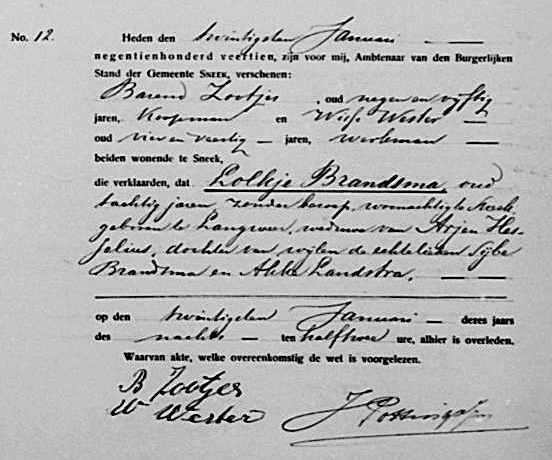 No. 12.
Heden den twintigsten Januari
negentienhonderd veertien, zijn voor mij, Ambtenaar van den Burgerlijken
Stand der Gemeente SNEEK, verschenen:
Barend Zootjes, oud negen en vijftig
jaren, Koopman en Wiebe Wester
oud vier en veertig jaren, werkman
beiden wonende te Sneek,
die verklaarden, dat Lolkje Brandsma, oud
tachtig jaren, zonder beroep, woonachtig te Sneek
geboren te Langweer, weduwe van Arjen Hes-
selius, dochter van wijlen de echtelieden Sijbe
Brandsma en Altke Landstra.
op den twintigsten Januari dezes jaars
des nachts ten half twee ure, alhier is overleden.
Waarvan akte, welke overeenkomstig de wet is voorgelezen.
B Zootjes
W Wester